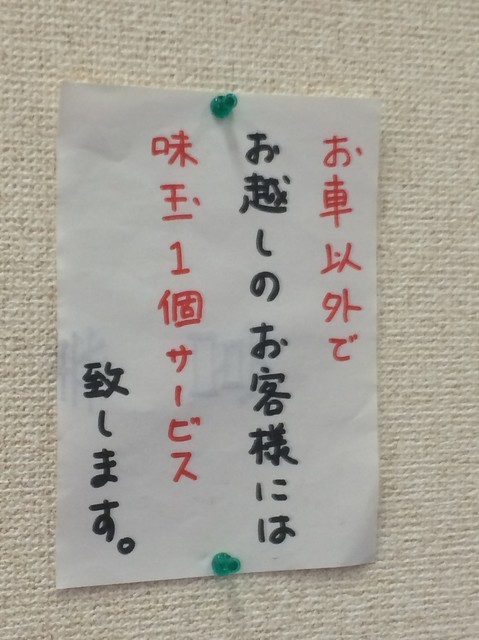 お車以外で
お越しのお客様には
味玉1個サービス
致します。